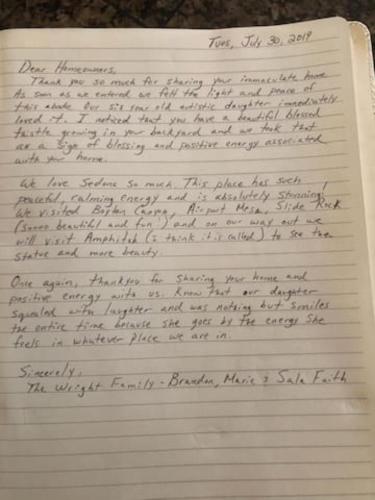 Tues, July 30, 2019
Dear Homeowners,
Thank you so much for sharing your immaculate home
As soon as we entered we felt the light and peace of
this abode. Our six year old autistic daughter immediately
loved it. I noticed that you have a beautiful blessed
thistle growing in your backyard and we took that
as a sign of blessing and positive energy associated
with your home.
We love Sedona so much. This place has such
peaceful, calming energy and is absolutely stunning!
We visited Boyton Canyon, Airport Mesa, Slide Rock
(soooo beautiful and fun!) and on our way out we
will visit Amphitab (I think it is called) to see the
statue and more beauty.
Once again, thankyou for sharing your home and
positive energy with us. Know that our daughter
squealed with laughter and was nothing but smiles
the entire time because she goes by the energy she
feels in whatever place we are in.
Sincerely,
The Wright Family - Brandon, Marie & Sala Faith